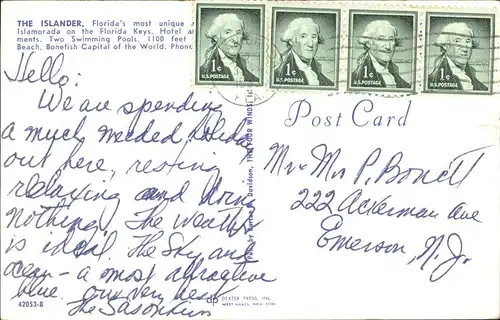 THE ISLANDER, Florida's most unique
Islamorada on the Florida Keys. Hotel
ments. Two Swimming Pools, 1100 feet
Beach, Bonefish Capital of the World. Phone
1¢ 1¢ 1¢ 1¢
U.S. POSTAGE U.S. POSTAGE U.S. POSTAGE U.S. POSTAGE
Hello:
We are spending
a much needed
out here, resting
relaxing and doing
nothing. The weather
is ideal. The Sky and
ocean - a most attractive
blue. Our very best
The
42053-B
Davidson, THE FOUR WINDS,
Post Card
Mr + Mrs P. Bonett
222 Ackerman Ave
Emerson, N.J.
DEXTER PRESS, INC.
WEST NYACK, NEW YORK